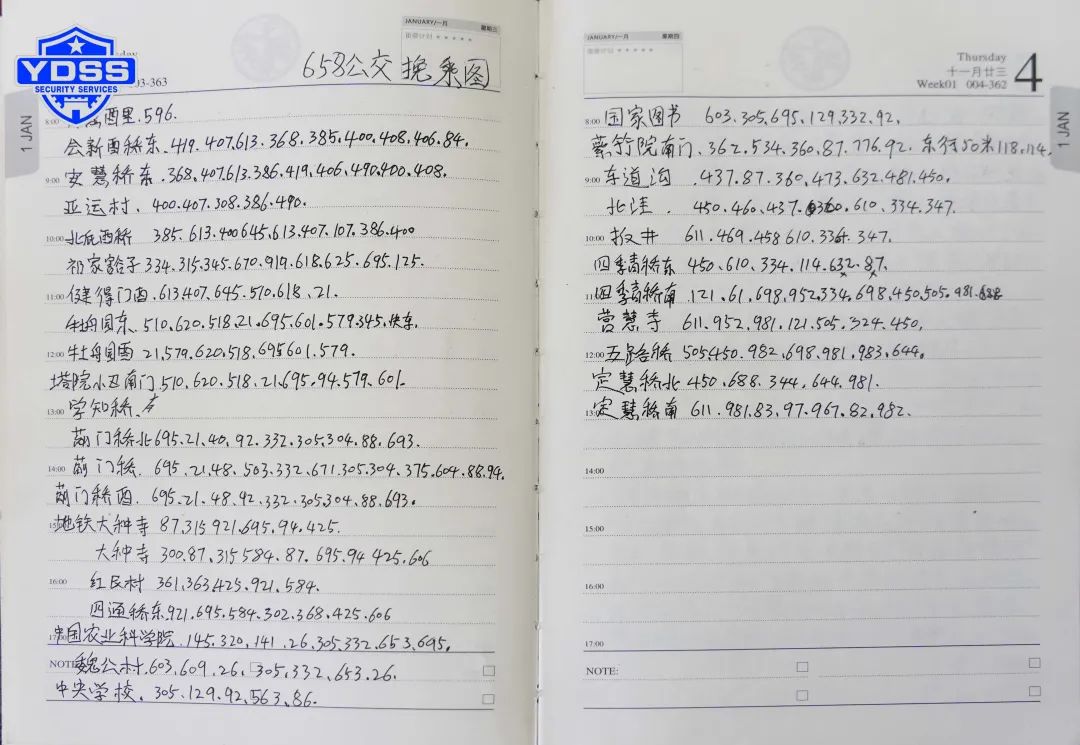 YDSS
SECURITY SERVICES
day
03-363
JANUARY/一月 星期三
重要计划 ★★★★★
658公交 换乘图
1 JAN
8:00 西里.596.
会新酉桥东.419.407.613.368.385.400.408.406.84.
9:00 安慧桥东.368.407.613.386.419.406.490.400.408.
亚运村、400.407.308.386.490.
10:00 北辰西桥 385.613.400 645.613.407.107.386.400
祁家豁子 334.315.345.670.919.618.625.695.125.
11:00 健得门酉.613 407.645.510.618.21.
牡丹园东.510.620.518.21.695.601.579.345.快车.
12:00 牡丹园酉 21.579.620.518.695 601.579.
塔院小区南门.510.620.518.21.695.94.579.601.
13:00 学知桥、
蓟门桥北 695.21.40.92.332.305.304.88.693.
14:00 蓟门桥. 695.21.48.503.332.671.305.304.375.604.88.94.
蓟门桥酉.695.21.48.92.332.305.304.88.693.
地铁大种寺 87.315 921.695.94.425.
大种寺 300.87.315 584.87.695.94 425.606
16:00 红民村 361.363 425.921.584.
四通桥东.921.695.584.302.368.425.606
17:00 中国农业科学院.145.320.141.26.305.332.653.695.
NOTE 魏公村.603.609.26.305.332.653.26.
中央学校.305.129.92.563.86.
JANUARY/一月 星期四
重要计划 ★★★★★
Thursday
十一月廿三
Week01 004-362
4
1 JAN
8:00 国家图书 603.305.695.129.332.92.
紫竹院南门、362.534.360.87.776.92. 东行50米118.114.
9:00 车道沟 .437.87.360.473.632.481.450.
北洼. 450.460.437.360.610.334.347.
10:00 板井 611.469.458 610.334.347.
四季青桥东 450.610.334.114.632.87.
四季青桥南 121.61.698.952.334.698.450.505.981.
营慧寺 611.952.981.121.505.324.450.
12:00 五路桥 505.450.982.698.981.983.644.
定慧桥北 450.688.344.644.981.
13:00 定慧桥南 611.981.83.97.967.82.982.
14:00
15:00
16:00
17:00
NOTE: